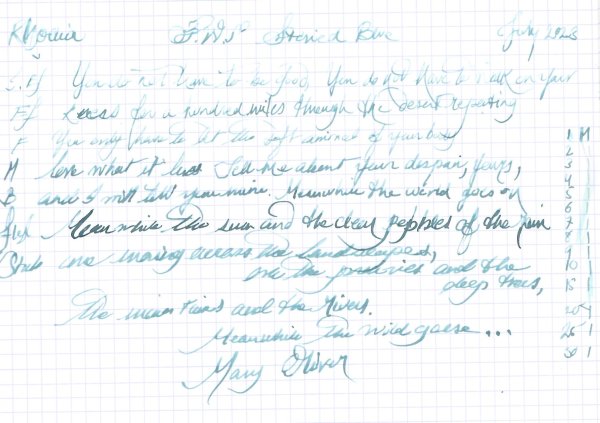 July 2023
S.Ef You do not have to be good, You do not have to walk on your
Ef knees for a hundred miles through the desert repenting
F You only have to let the soft animal of your body
M love what it loves Tell me about your despair, yours,
B and I will tell you mine. Meanwhile the world goes on
Meanwhile the sun and the clear pebbles of the rain
are moving across the landscapes,
over the prairies and the
deep trees,
the mountains and the rivers.
Meanwhile the wild geese...
Mary Oliver
1 M
2
3
4
5
6
7
8 1
9 1
10 1
15 1
20 4
25 1
30 1